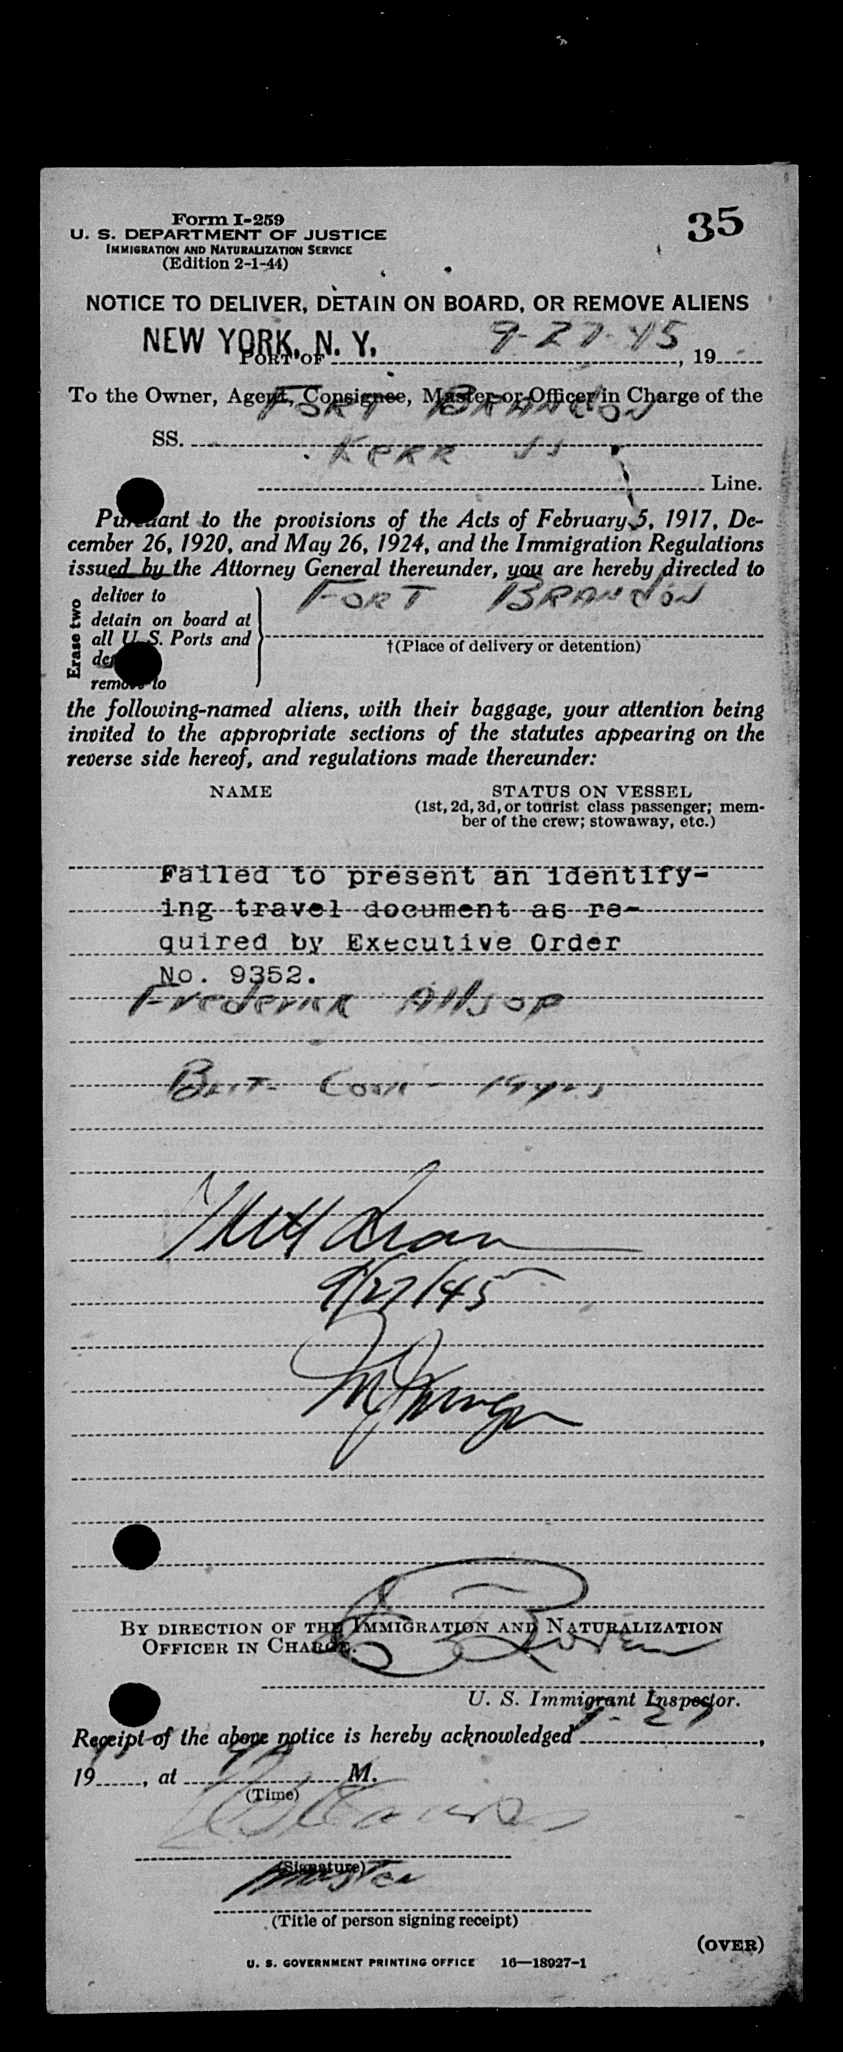 Form I-259
U. S. DEPARTMENT OF JUSTICE
IMMIGRATION AND NATURALIZATION SERVICE
(Edition 2-1-44)
35
NOTICE TO DELIVER, DETAIN ON BOARD, OR REMOVE ALIENS
NEW YORK, N. Y. 9-27-45
PORT OF , 19
To the Owner, Agent, Consignee, Master or Officer in Charge of the
FORT BRANDON
SS.
KERR SS
Line.
Pursuant to the provisions of the Acts of February 5, 1917, De-
cember 26, 1920, and May 26, 1924, and the Immigration Regulations
issued by the Attorney General thereunder, you are hereby directed to
Erase two
deliver to
detain on board at
all U. S. Ports and
remove to
FORT BRANDON
†(Place of delivery or detention)
the following-named aliens, with their baggage, your attention being
invited to the appropriate sections of the statutes appearing on the
reverse side hereof, and regulations made thereunder:
NAME STATUS ON VESSEL
(1st, 2d, 3d, or tourist class passenger; mem-
ber of the crew; stowaway, etc.)
Failed to present an identify-
ing travel document as re-
quired by Executive Order
No. 9352.
Frederick Allsop
Brit. 19 yrs
9/27/45
BY DIRECTION OF THE IMMIGRATION AND NATURALIZATION
OFFICER IN CHARGE.
U. S. Immigrant Inspector.
Receipt of the above notice is hereby acknowledged 9-27,
19 , at M.
(Time)
(Signature)
Master
(Title of person signing receipt)
(OVER)
U. S. GOVERNMENT PRINTING OFFICE 16—18927-1